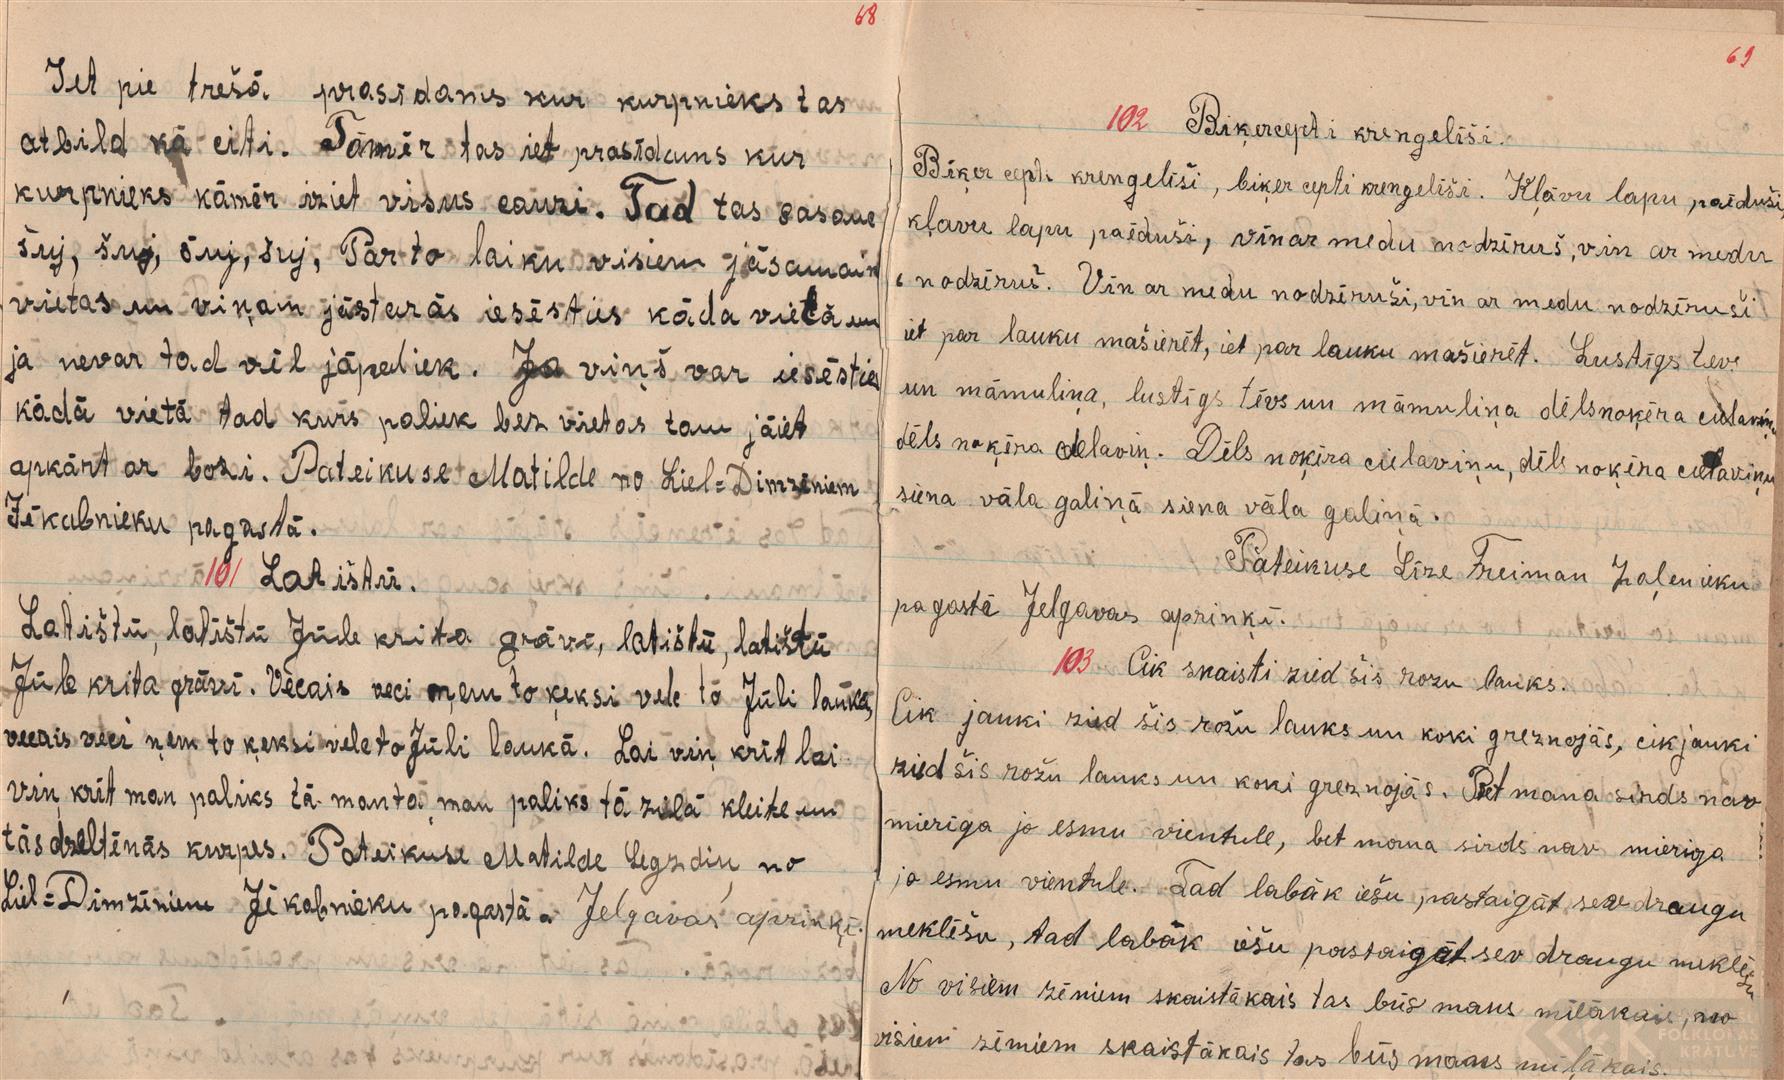 68
Iet pie trešā prasīdams kur kurpnieks tas
atbild kā citi. Tāmēr tas iet prasīdams kur
kurpnieks kāmēr iziet visus cauri. Tad tas sasauc
šuj, šuj, šuj, šuj, Par to laiku visiem jāsamain
vietas un viņam jāstarās iesēsties kāda vietā un
ja nevar tad vēl jāpaliek. Ja viņš var iesēsties
kādā vietā tad kurš paliek bez vietas tam jāiet
apkārt ar bozi. Pateikuse Matilde no Liel=Dimzēniem
Jēkabnieku pagastā.
101 Latištū.
Latištū, latištū Jūle krita grāvī, latištū, latištū
Jūle krita grāvī. Vēcais veci ņem to ķeksi velc to Jūli laukā,
vecais veci ņem to ķeksi velc to Jūli laukā. Lai viņ krīt lai
viņ krīt man paliks tā manta, man paliks tā zilā kleite un
tās dzeltēnās kurpes. Pateikuse Matilde Legzdiņ no
Liel=Dimzēniem Jēkabnieku pagastā. Jelgavas apriņķī.
69
102 Biķercepti krengelīši.
Biķer cepti krengelīši, biķer cepti krengelīši. Kļāvu lapu paēduši,
kļavu lapu paēduši, vīnar medu nodzēruš, vin ar medu
nodzēruš. Vīn ar medu nodzēruši, vīn ar medu nodzēruši
iet par lauku mašierēt, iet par lauku mašierēt. Lustīgs tevs
un māmuliņa, lustīgs tēvs un māmuliņa dēls noķēra cielaviņu
dēls noķēra cielaviņ. Dēls noķēra cielaviņu, dēls noķēra cielaviņu
siena vāla galiņā siena vāla galiņā.
Pāteikuse Līze Freiman Zaļenieku
pagastā Jelgavas apriņķī.
103 Cik skaisti zied šis rozu lauks.
Cik jauki zied šis rožu lauks un koki greznojās, cik jauki
zied šis rožu lauks un koki greznojās. Bet mana sirds nav
mierīga jo esmu vientule, bet mana sirds nav mieriga
jo esmu vientule. Tad labāk iešu pastaigāt sev draugu
meklēšu, tad labāk iešu pastaigāt sev draugu meklēšu
No visiem zēniem skaistākais tas būs mans mīļākais, no
visiem zēniem skaistākais tas būs mans mīļākais.
FOLKLORAS
KRĀTUVE